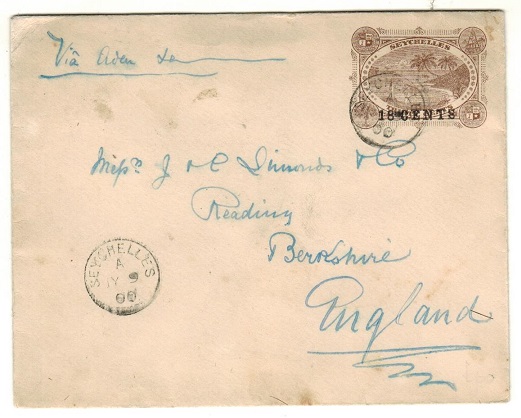 Via Aden
SEYCHELLES
18 CENTS
Messrs J & C Simonds & Co
Reading
Berkshire
England
SEYCHELLES
A
9
00